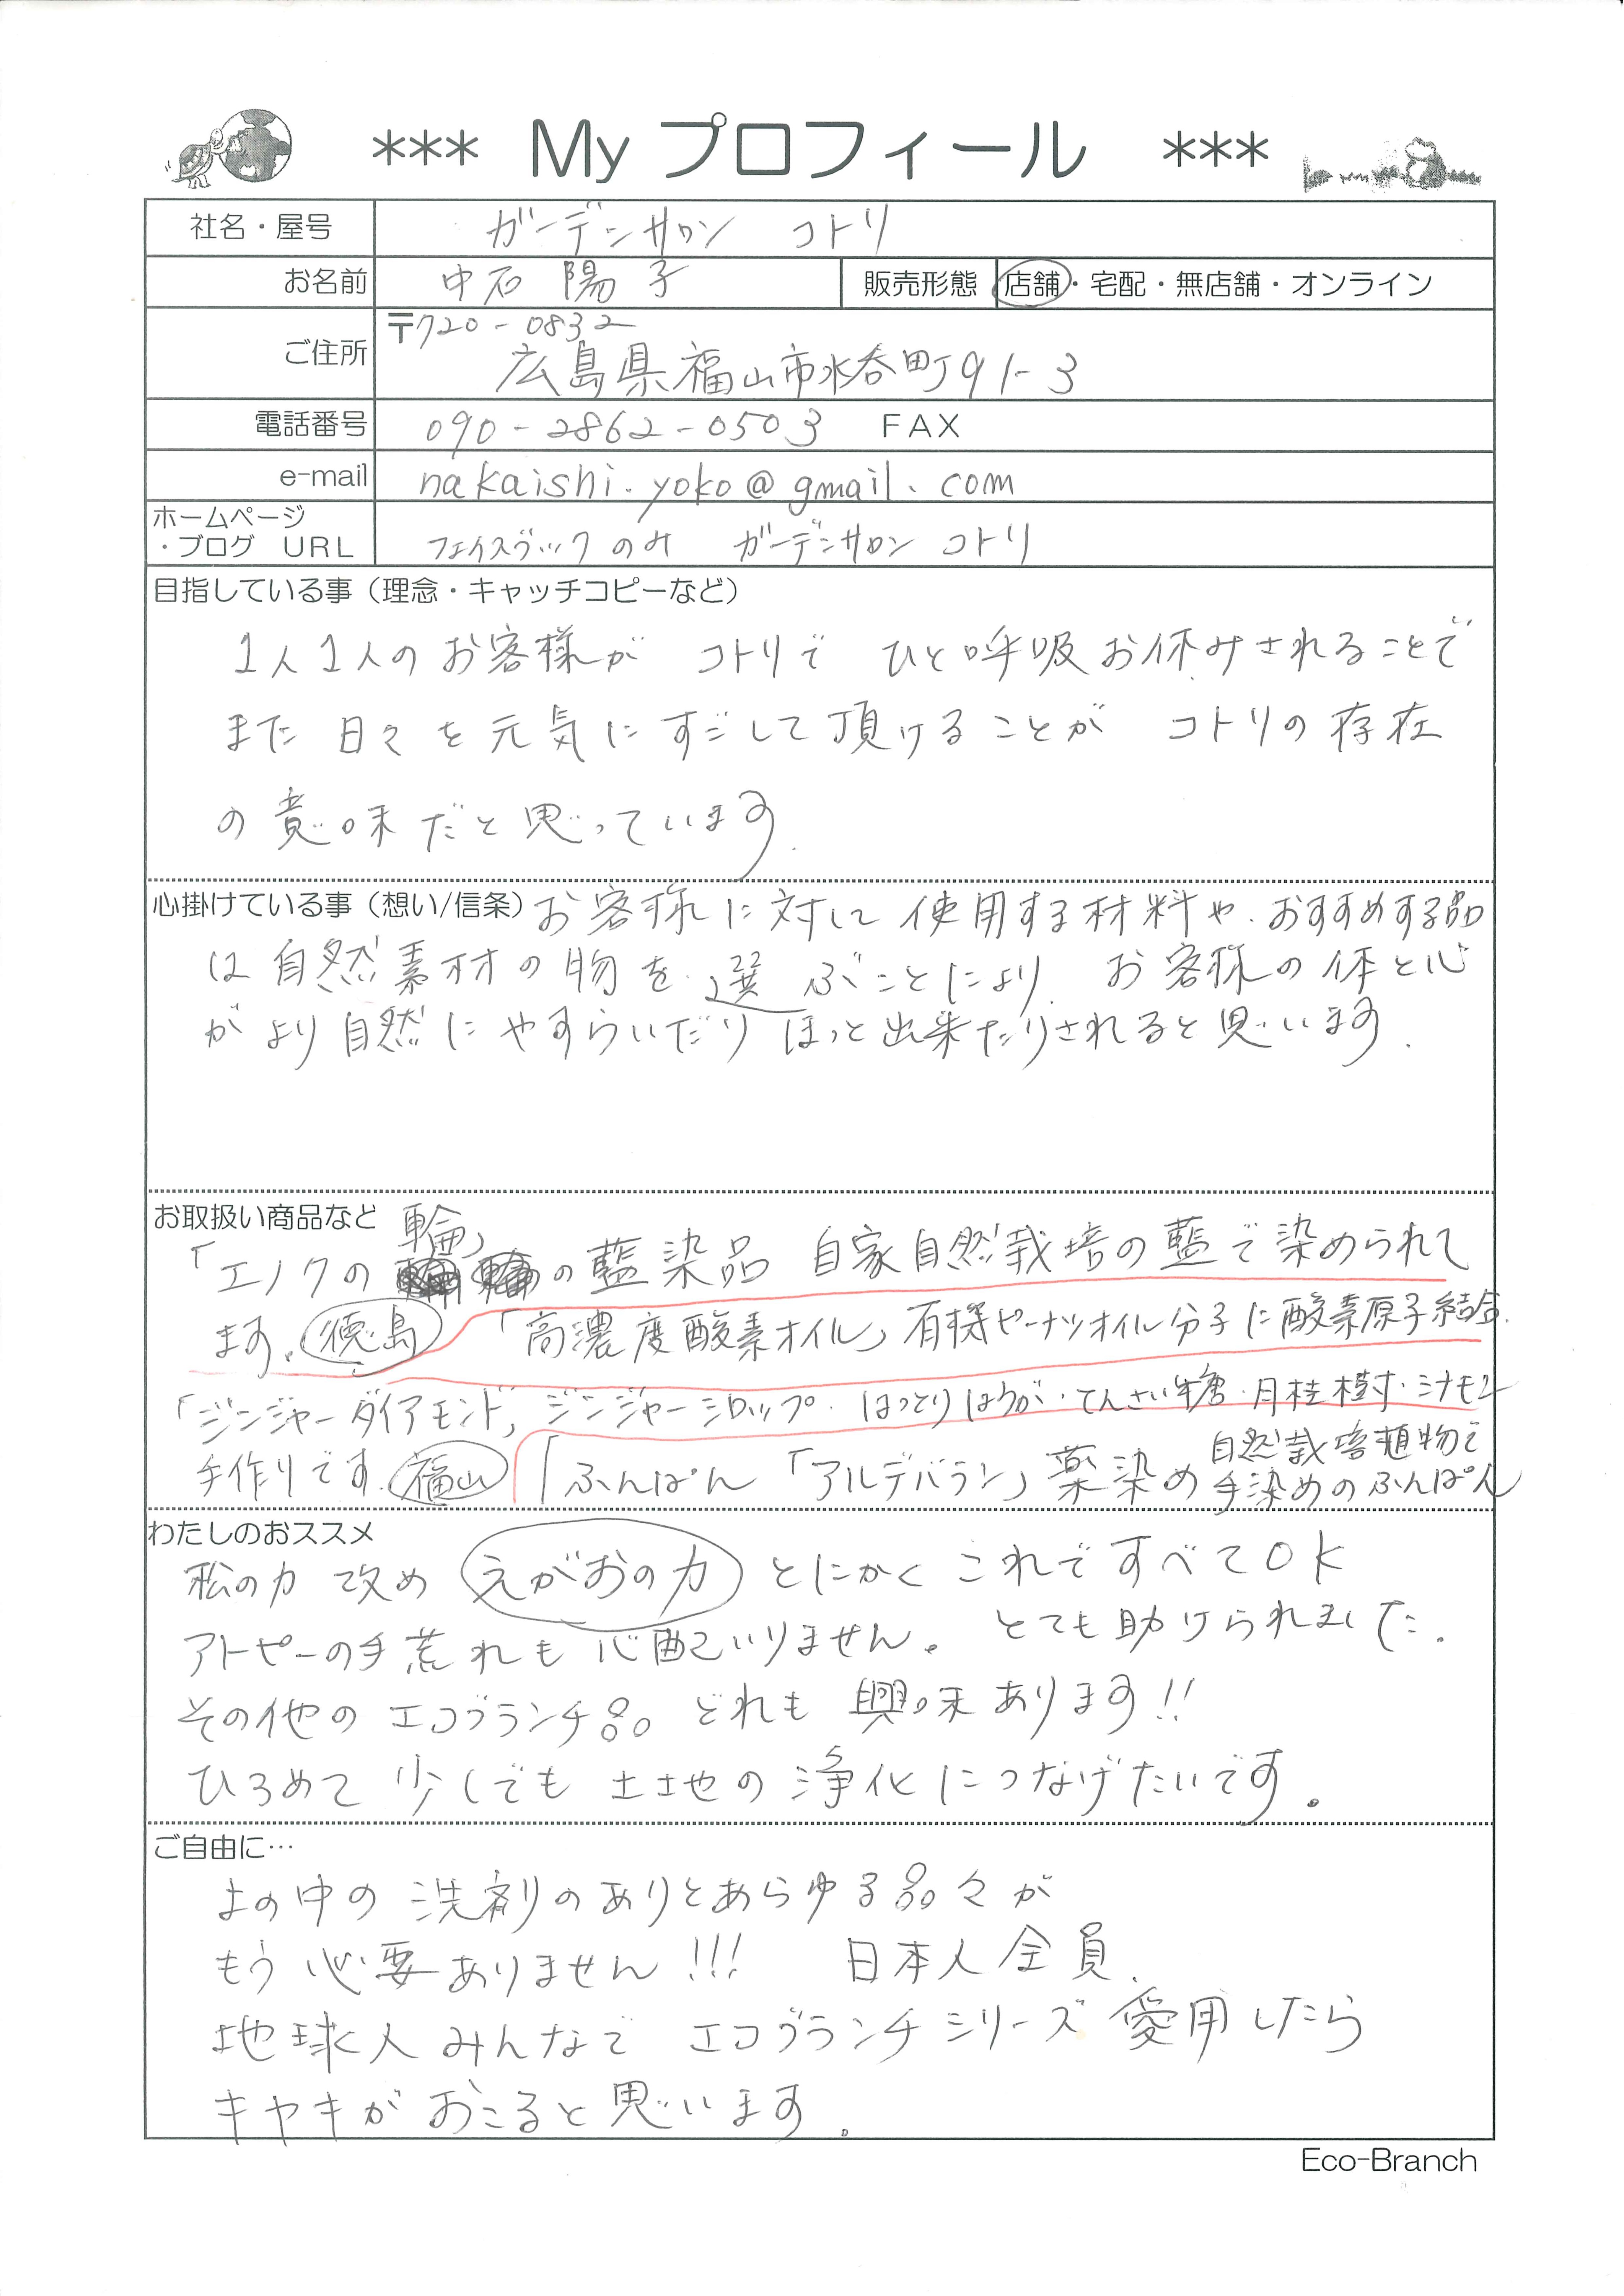 *** My プロフィール ***
社名・屋号 ガーデンサロン コトリ
お名前 中石 陽子 販売形態 店舗・宅配・無店舗・オンライン
ご住所 〒720-0832
広島県福山市水呑町91-3
電話番号 090-2862-0503 FAX
e-mail nakaishi.yoko@gmail.com
ホームページ
・ブログ URL フェイスブックのみ ガーデンサロン コトリ
目指している事（理念・キャッチコピーなど）
1人1人のお客様が コトリで ひと呼吸お休みされることで
また 日々を元気にすごして頂けることが コトリの存在
の意味だと思っています.
心掛けている事（想い/信条） お客様に対して使用する材料や.おすすめする品
は自然素材の物を選ぶことにより. お客様の体と心
がより自然にやすらいだり ほっと出来たりされると思います.
お取扱い商品など
「エノクの輪」の藍染品 自家自然栽培の藍で染められて
ます。徳島 「高濃度酸素オイル」有機ピーナツオイル分子に酸素原子結合.
「ジンジャーダイアモンド」ジンジャーシロップ. ほっとりほうが・てんさい糖・月桂樹・シナモン
手作りです.福山 「ふんぱん 「アルデバラン」薬染め 自然栽培植物で
手染めのふんぱん
わたしのおススメ
松の力 改め えがおの力 とにかく これですべてOK
アトピーの手荒れも心配いりません。 とても助けられました.
その他の エコブランチ品 どれも 興味あります!!
ひろめて 少しでも 土地の浄化につなげたいです。
ご自由に…
よの中の 洗剤のありとあらゆる品々が
もう 必要ありません!!! 日本人全員.
地球人 みんなで エコブランチシリーズ愛用したら
キセキが おこると思います.
Eco-Branch